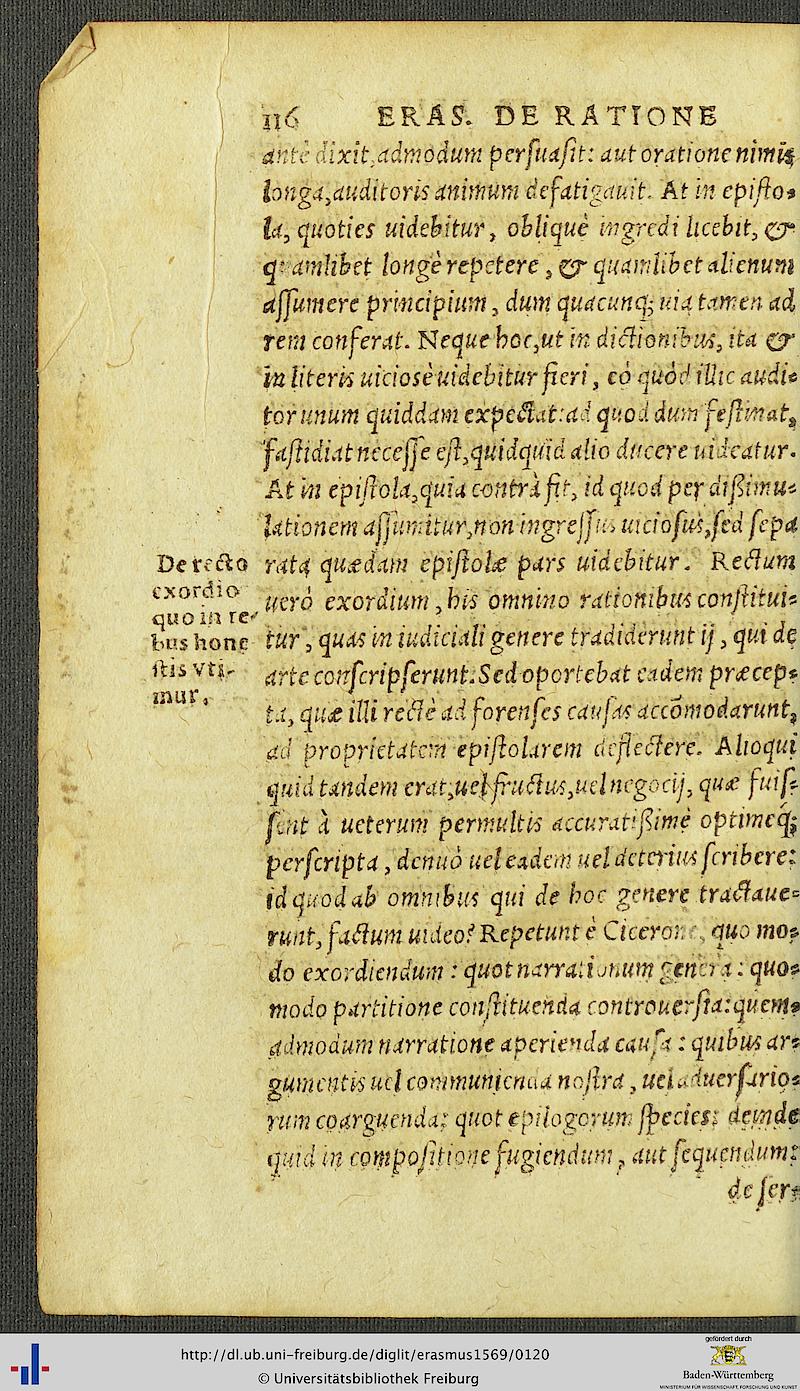 116 ERAS. DE RATIONE
antè dixit, admodum persuasit: aut oratione nimis
longa, auditoris animum defatigauit. At in episto-
la, quoties uidebitur, obliquè ingredi licebit, &
quamlibet longè repetere, & quamlibet alienum
assumere principium, dum quacunq; uia tamen ad
rem conferat. Neque hoc, ut in dictionibus, ita &
in literis uiciosè uidebitur fieri, eò quòd illic audi-
tor unum quiddam expectat: ad quod dum festinat,
fastidiat necesse est, quidquid alio ducere uideatur.
At in epistola, quia contrà fit, id quod per dißimu-
lationem assumitur, non ingressus uiciosus, sed sepa
rata quædam epistolæ pars uidebitur. Rectum
uerò exordium, his omnino rationibus constitui-
tur, quas in iudiciali genere tradiderunt ij, qui de
arte conscripserunt. Sed oportebat eadem præcep-
ta, quæ illi rectè ad forenses causas accõmodarunt,
ad proprietatem epistolarem deflectere. Alioqui
quid tandem erat, uel fructus, uel negocij, quæ fuis-
sent à ueterum permultis accuratißimè optimeq;
perscripta, denuò uel eadem uel deterius scribere:
id quod ab omnibus qui de hoc genere tractaue-
runt, factum uideo? Repetunt è Cicerone, quo mo-
do exordiendum: quot narrationum genera: quo-
modo partitione constituenda controuersia: quem-
admodum narratione aperienda causa: quibus ar-
gumentis uel communienda nostra, uel aduersario-
rum coarguenda: quot epilogorum species: deinde
quid in compositione fugiendum, aut sequendum:
de ser-
De recto
exordio
quo in re-
bus hone
stis vti-
mur.
http://dl.ub.uni-freiburg.de/diglit/erasmus1569/0120
© Universitätsbibliothek Freiburg
gefördert durch
Baden-Württemberg
MINISTERIUM FÜR WISSENSCHAFT, FORSCHUNG UND KUNST